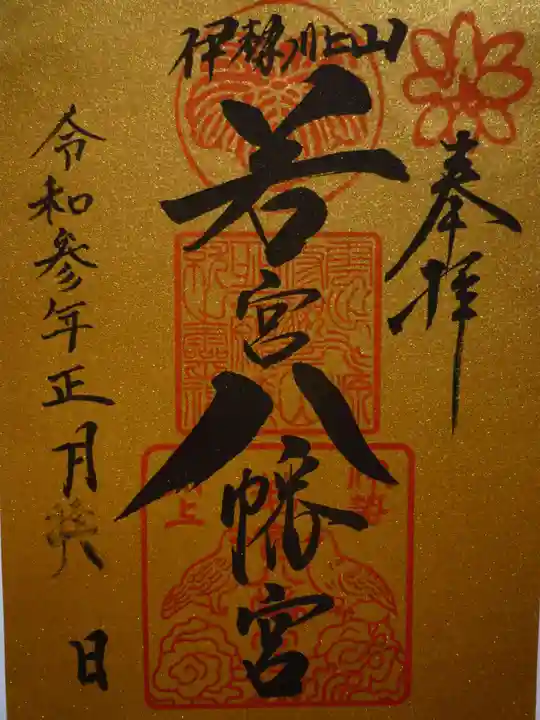 奉拝
伊勢川上山
若宮八幡宮
令和参年正月
日